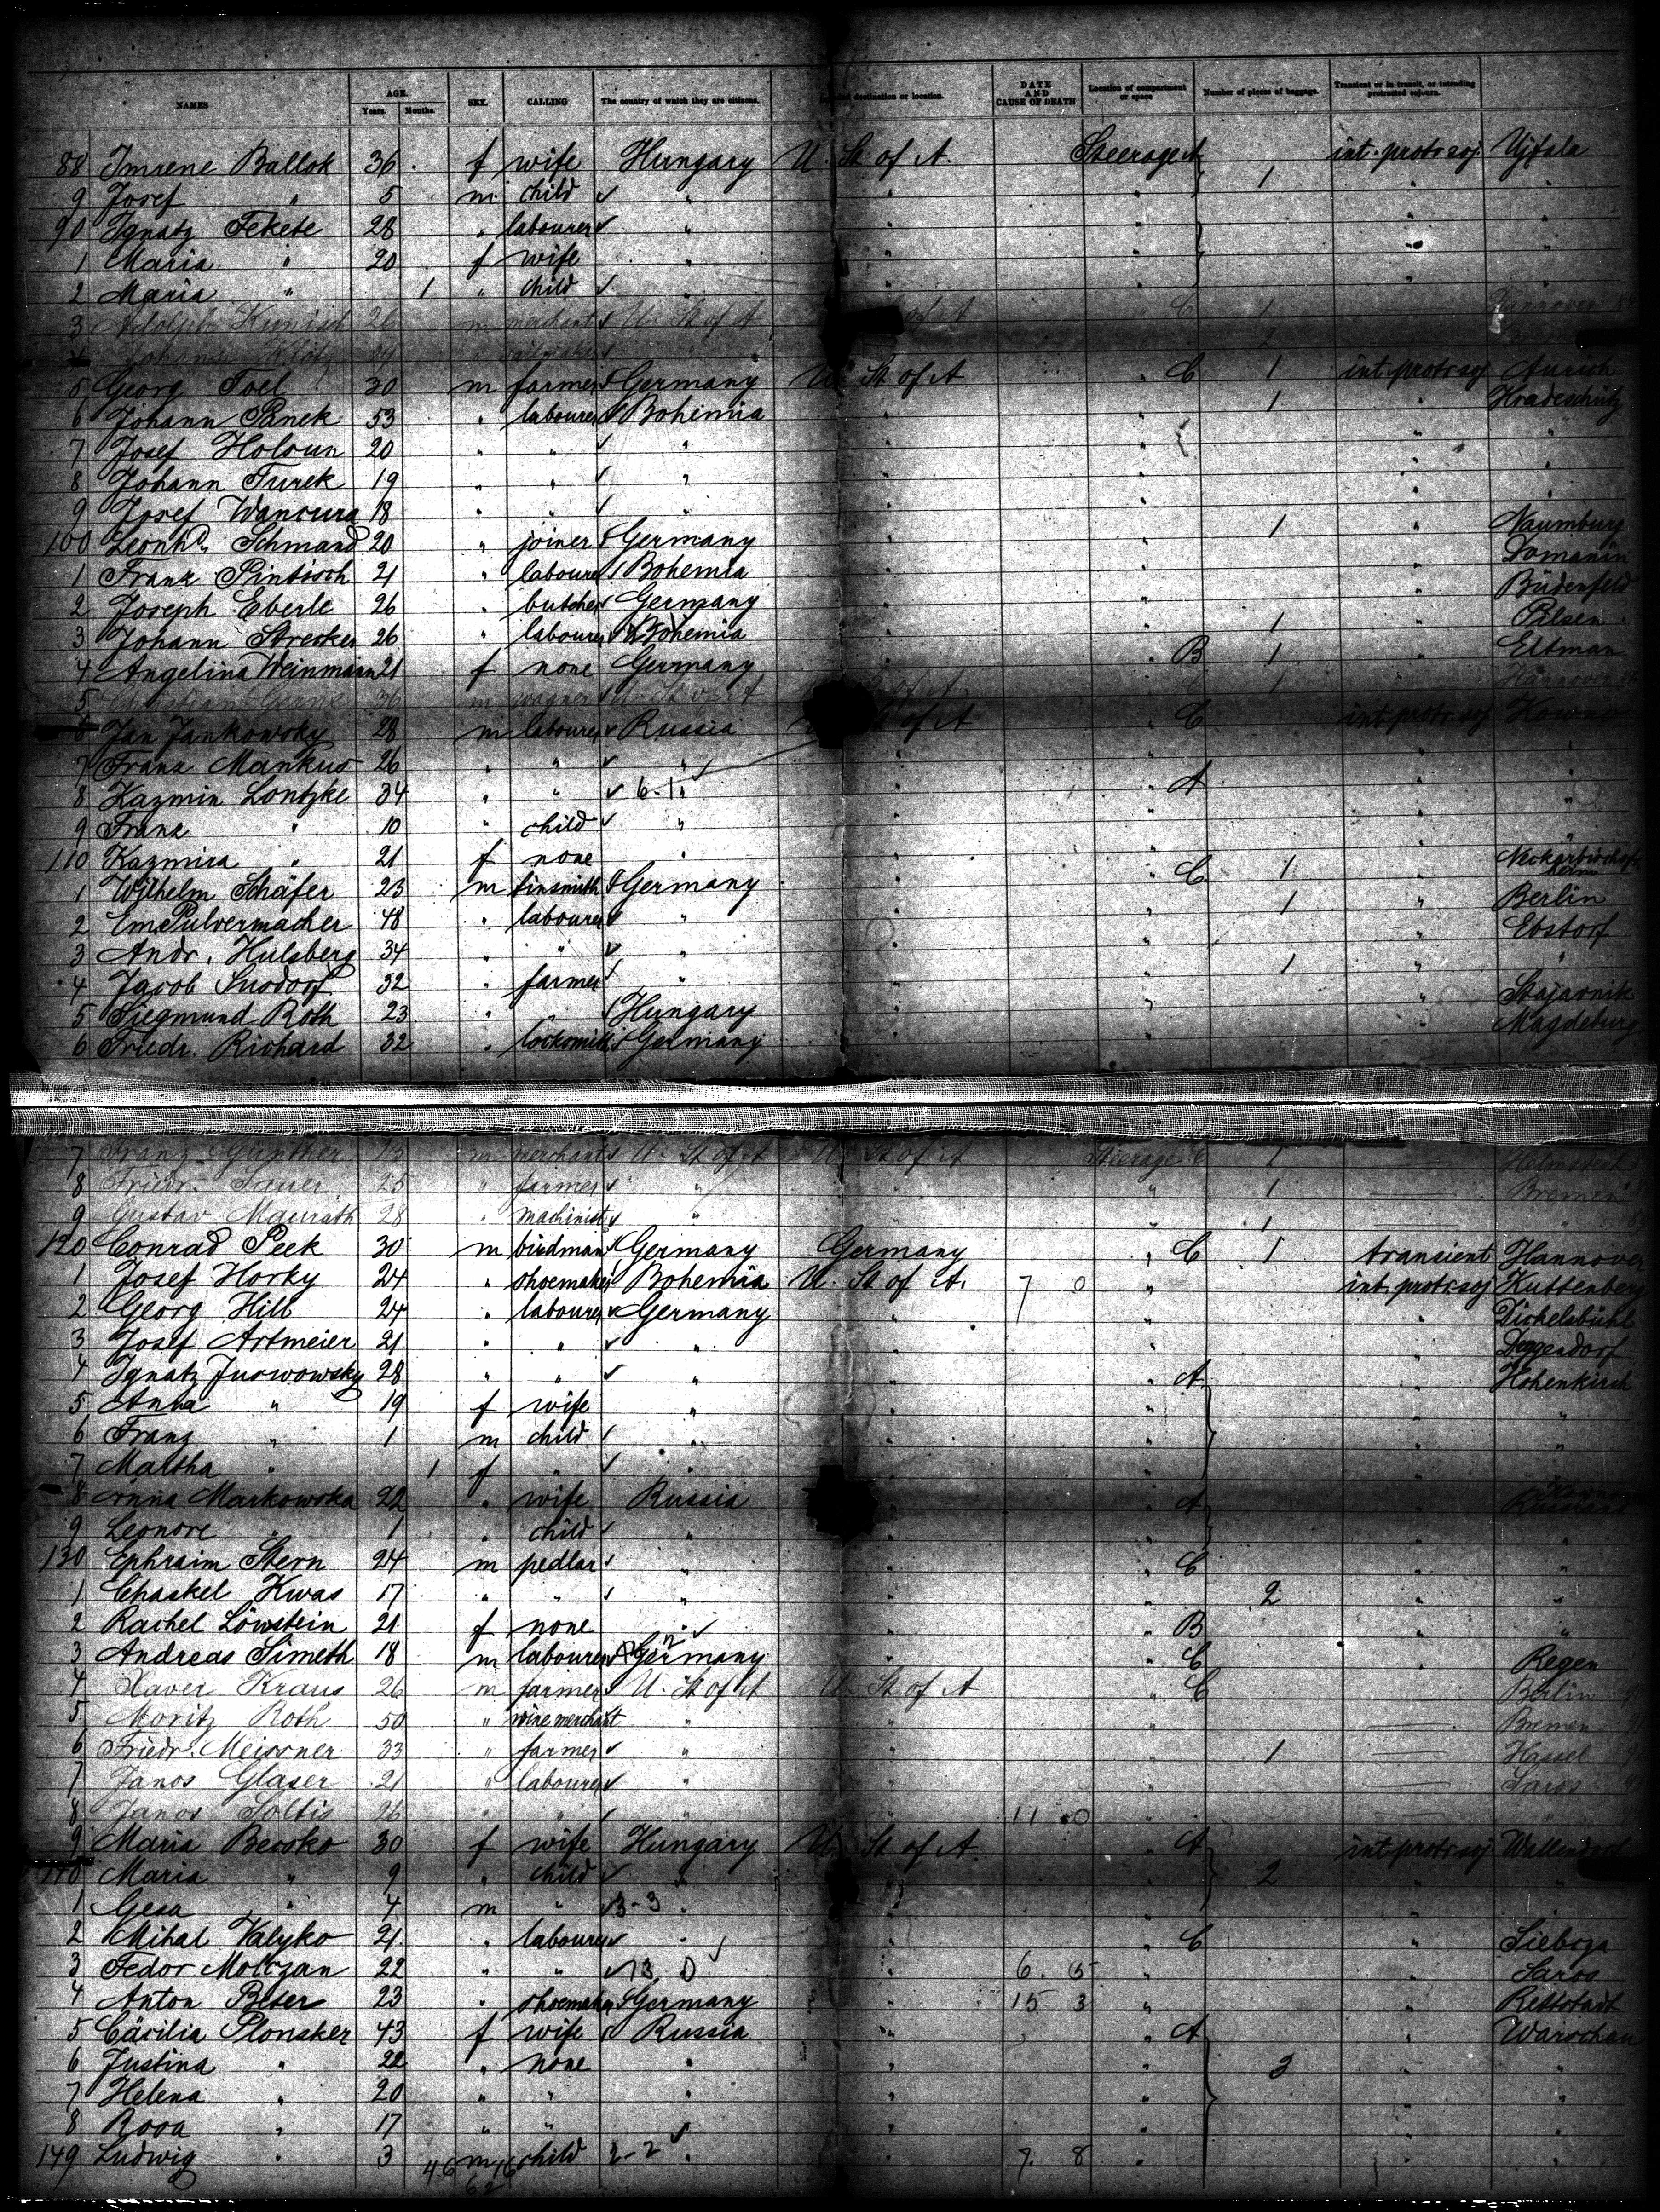 NAMES AGE. Years. Months. SEX. CALLING The country of which they are citizens. destination or location. DATE AND CAUSE OF DEATH Location of compartment or space Number of pieces of baggage. Transient or in transit, or intending protracted sojourn.
88 Imrene Ballok 36 f wife Hungary U. St of A. Steerage A 1 int. protr soj. Ujfala
9 Josef " 5 m child " " " " "
90 Ignatz Fekete 28 " labourer " " " " "
1 Maria " 20 f wife " " " " "
2 Maria " 1 " child " " " "
3 Adolph Kunisch 26 m merchant U. St of A of A " C 1 Hannover
4 Johann 2
5 Georg Toel 30 m farmer Germany U. St of A " C 1 int protr soj Aurich
6 Johann Panek 53 " labourer Bohemia " " 1 " Hradeschutz
7 Josef Holoun 20 " " " " " " "
8 Johann Turek 19 " " " " " " "
9 Josef Wancura 18 " " " " " " "
100 Leonhd. Schmand 20 " joiner Germany " " 1 " Naumburg
1 Franz Pintisch 21 " labourer Bohemia " " " Lomanin
2 Joseph Eberle 26 " butcher Germany " " " Büdenfeld
3 Johann Strecker 26 " labourer Bohemia " " 1 " Pilsen
4 Angelina Weinmann 21 f none Germany " " B 1 " Eltman
5 Christian 36 m wagner U. St of A of A " C 1 Hannover
6 Jan Jankowsky 28 m labourer Russia U. St of A " C int protr soj Kowno
7 Franz Mankus 26 " " " " " " "
8 Kazmin Lontzke 34 " " 6-1 " " A " "
9 Franz " 10 " child " " " " "
110 Kazmira " 21 f none " " " " "
1 Wilhelm Schäfer 23 m tinsmith Germany " " C 1 " Neckarbischofsheim
2 Em Pulvermacher 48 " labourer " " " 1 " Berlin
3 Andr. Hulsberg 34 " " " " " " Ebstorf
4 Jacob Susdorf 32 " farmer " " " 1 " "
5 Siegmund Roth 23 " Hungary " " " Stajarnik
6 Friedr. Richard 32 " locksmith Germany " " " Magdeburg
7 Franz Günther m merchant U. St of A U. St of A Steerage C 1 — Helmstedt
8 Friedr. Sauer 25 " farmer " " " 1 — Bremen
9 Gustav Maurath 28 " machinist " " " 1 "
120 Conrad Peek 30 m birdman Germany Germany " C 1 transient Hannover
1 Josef Horky 24 " shoemaker Bohemia U. St of A. 7 0 " int. protr soj Kuttenberg
2 Georg Hill 24 " labourer Germany " " " Dichelsbühl
3 Josef Artmeier 21 " " " " " " Deggendorf
4 Ignatz Jurwowsky 28 " " " " " A " Hohenkirch
5 Anna " 19 f wife " " " " "
6 Franz " 1 m child " " " " "
7 Martha " 1 f " " " " " "
8 Anna Markowska 22 " wife Russia " " A "
9 Leonore " 1 " child " " " "
130 Ephraim Stern 24 m pedlar " " " C " "
1 Chaskel Kwas 17 " " " " " 2 " "
2 Rachel Löwstein 21 f none " " " B " "
3 Andreas Simeth 18 m labourer Germany " " C " Regen
4 Xaver Kraus 26 m farmer U. St of A U. St of A " C — Berlin
5 Moritz Roth 50 " wine merchant " " " — Bremen
6 Friedr. Meissner 33 " farmer " " " 1 — Hassel
7 Janos Glaser 21 " labourer " " " — Saros
8 Janos Soltis 26 " " " " 11 0 " — "
9 Maria Becsko 30 f wife Hungary U. St of A " A int protr soj Wallendorf
140 Maria " 9 " child " " " 2 " "
1 Gesa " 4 m " 3-3 " " " " "
2 Mihal Valyko 21 " labourer " " " C " Sieboza
3 Fedor Molczan 22 " " 13 0 " 6. 5 " " Saros
4 Anton Beter 23 " shoemaker Germany " 15 3 " " Rettstadt
5 Cäcilia Plonsker 43 f wife Russia " " A " Warschau
6 Justina " 22 " none " " " 3 " "
7 Helena " 20 " " " " " " "
8 Rosa " 17 " " " " " "
149 Ludwig " 3 m child 2-2 " " 7. 8 " " "
46 16
62